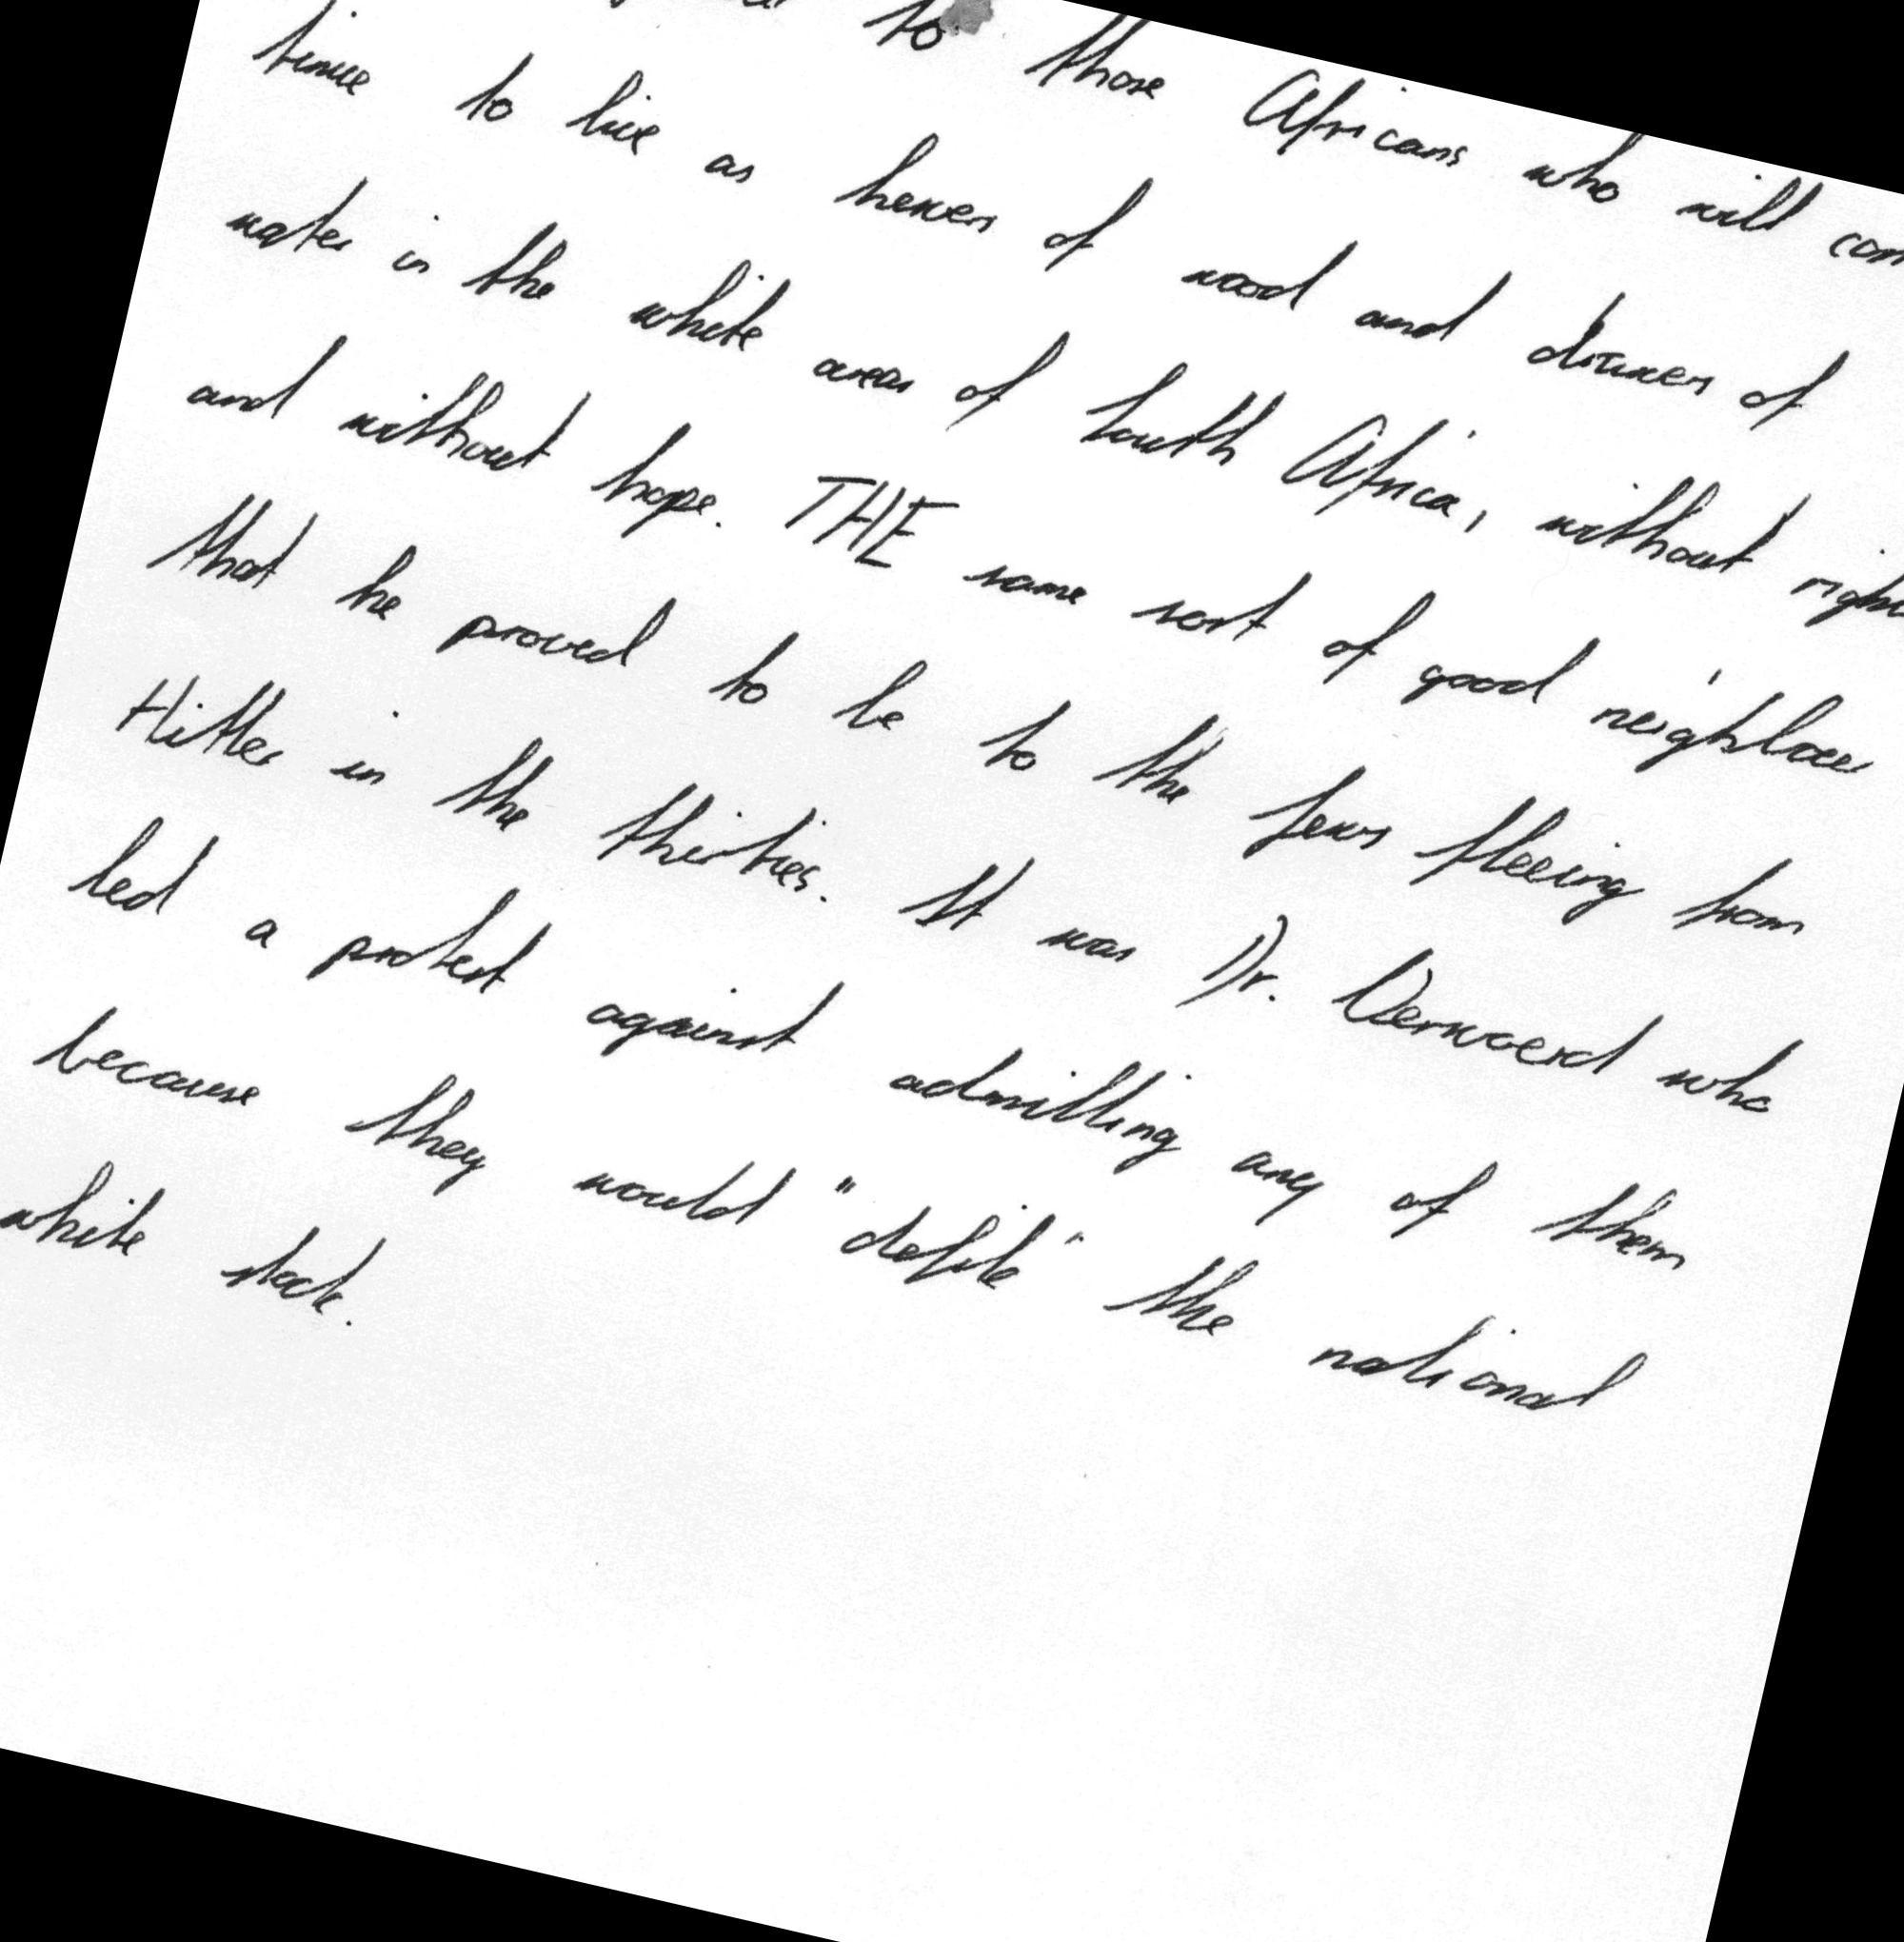 to those Africans who will con
tinue to live as hewers of wood and drawers of
water in the white areas of South Africa, without
and without hope. THE same sort of good neighbour
that he proved to be to the Jews fleeing from
Hitler in the thirties. It was Dr. Verwoerd who
led a protest against admitting any of them
because they would "defile" the national
white stock.